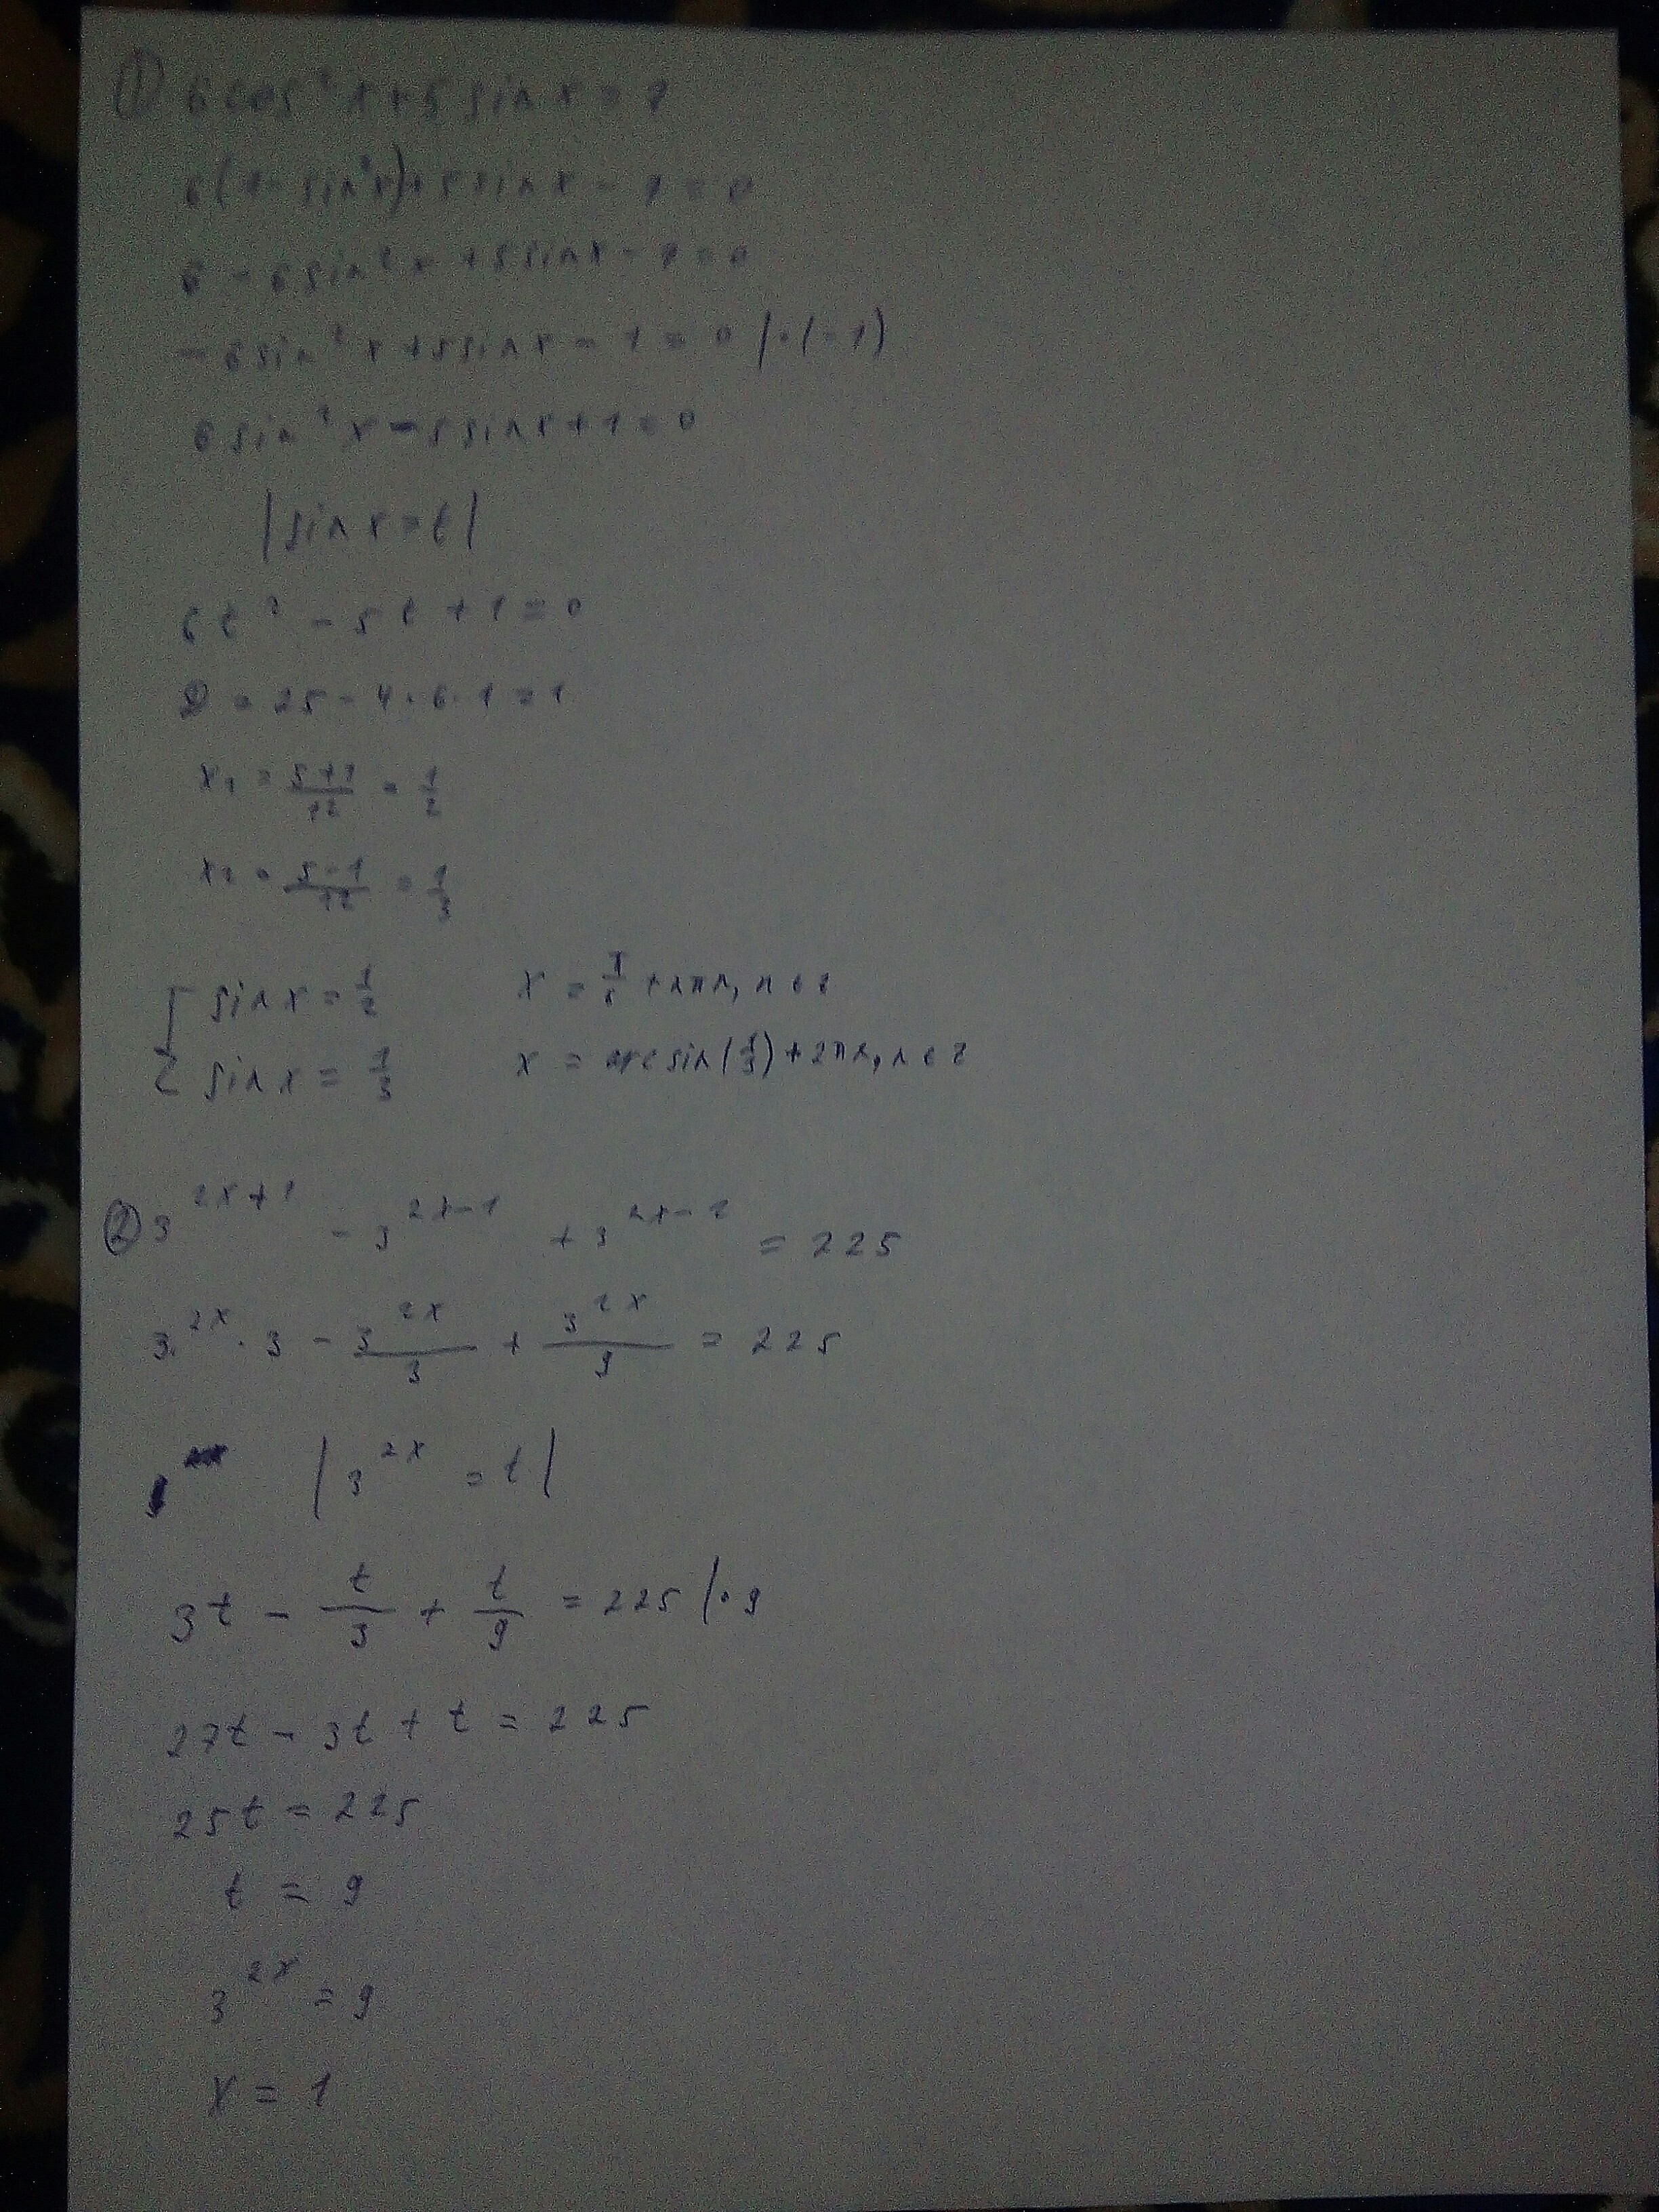 ① 6cos²x+5sinx=7
6(1-sin²x)+5sinx-7=0
6-6sin²x+5sinx-7=0
-6sin²x+5sinx-1=0 |·(-1)
6sin²x-5sinx+1=0
|sinx=t|
6t²-5t+1=0
D=25-4·6·1=1
x₁=(5+1)/12=1/2
x₂=(5-1)/12=1/3
[ sinx=1/2 x=π/6+2πn, n∈z
sinx=1/3 x=arcsin(1/3)+2πn, n∈z
② 3^(2x+1)-3^(2x-1)+3^(2x-2)=225
3^(2x)·3-3^(2x)/3+3^(2x)/9=225
|3^(2x)=t|
3t-t/3+t/9=225 |·9
27t-3t+t=225
25t=225
t=9
3^(2x)=9
x=1